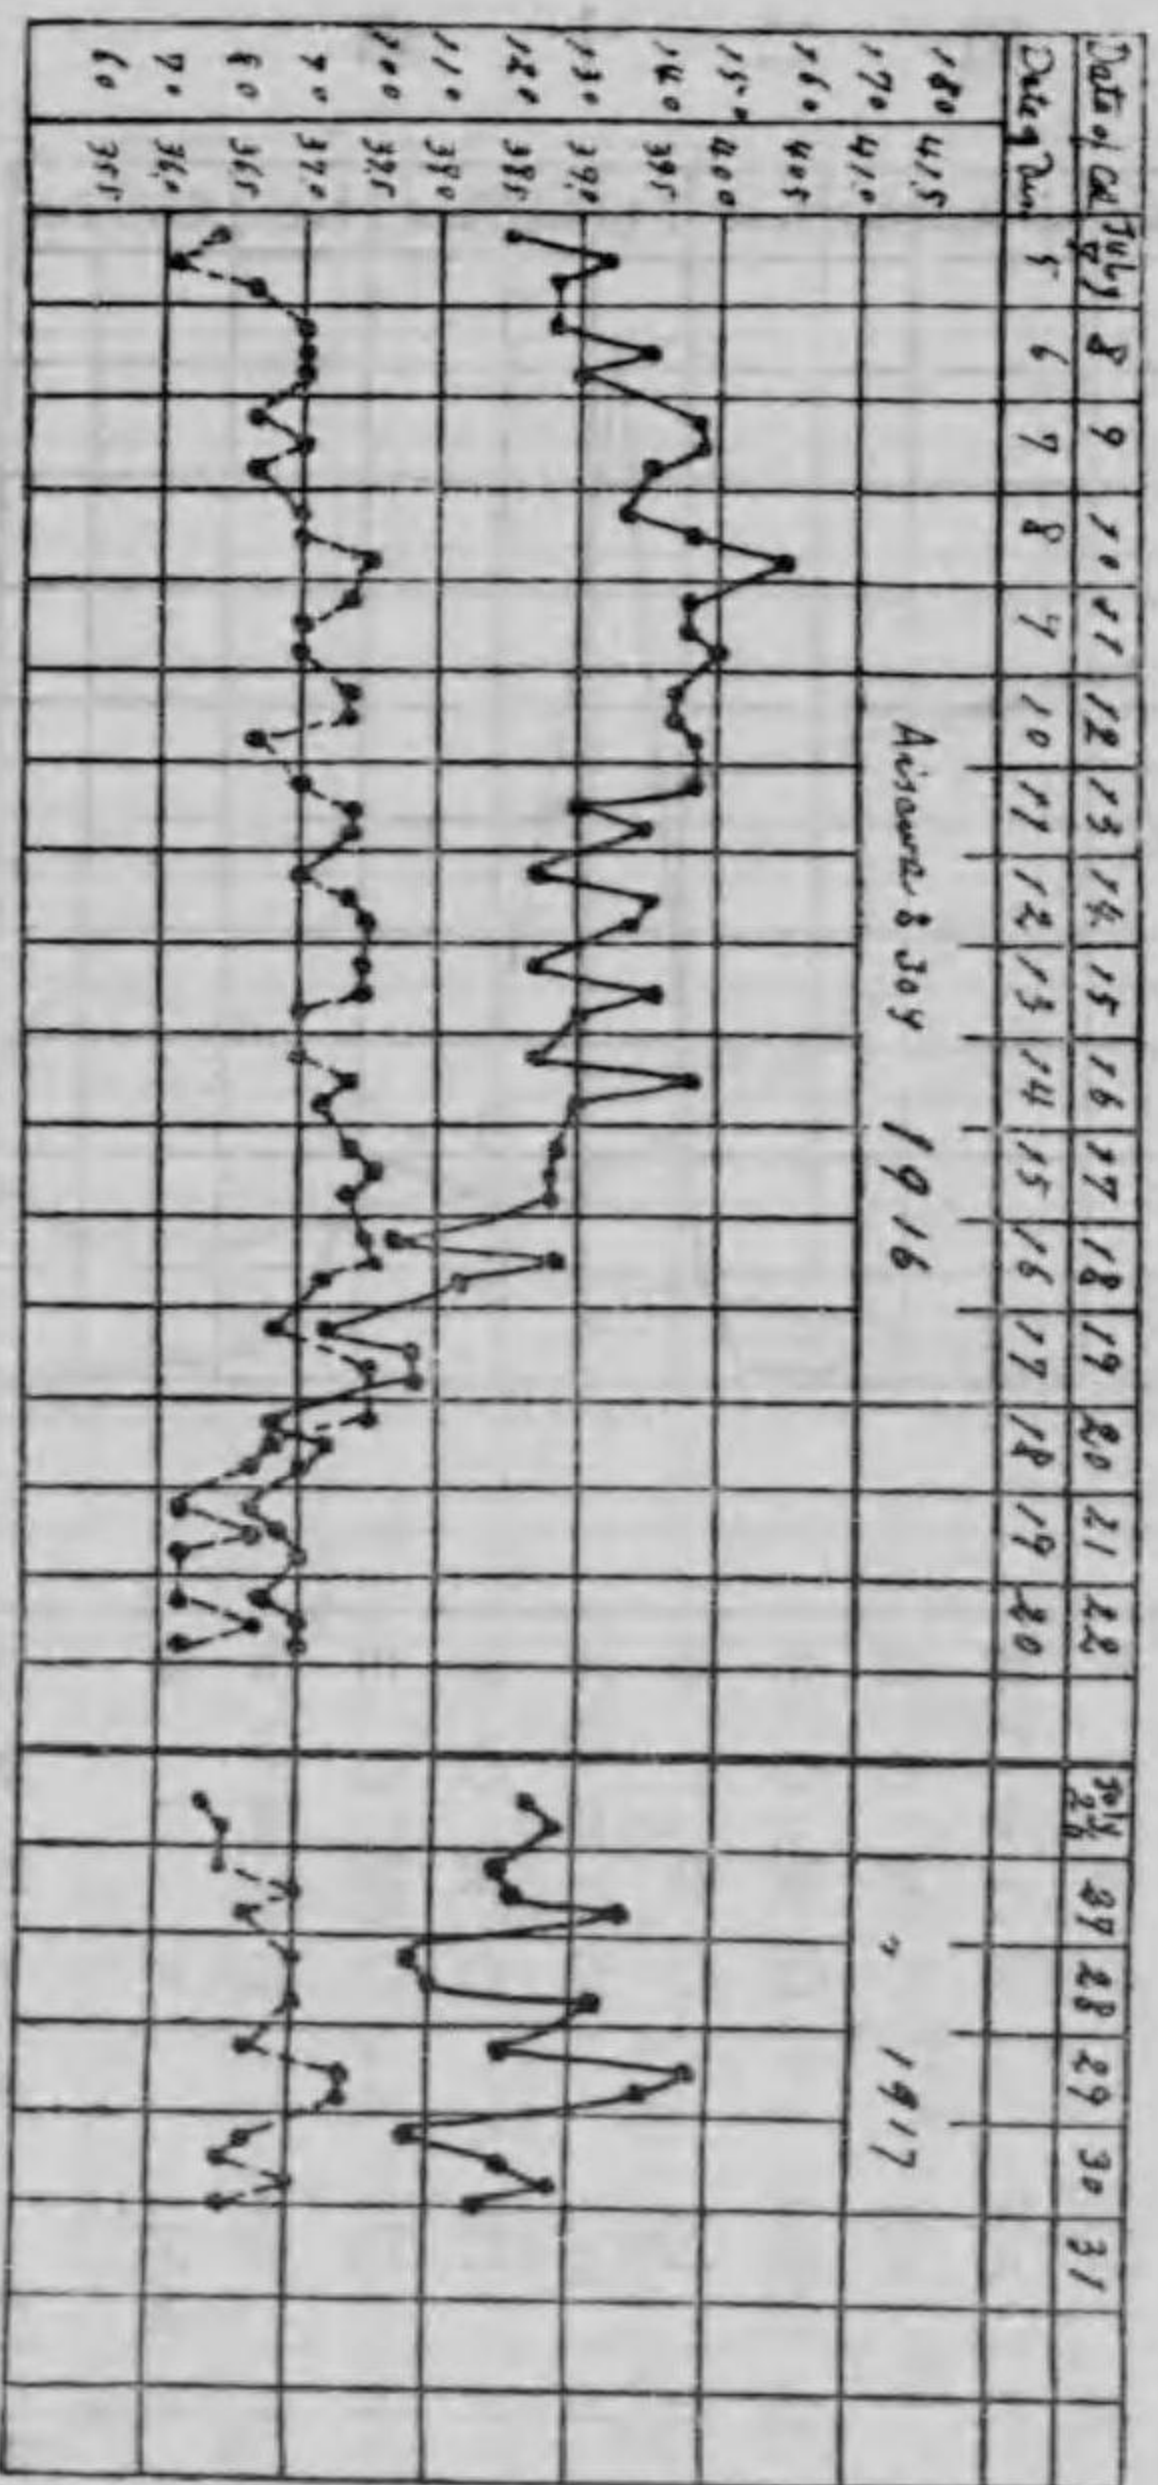 Date of Cal July 7 8 9 10 11 12 13 14 15 16 17 18 19 20 21 22 July 26 27 28 29 30 31
5 6 7 8 9 10 11 12 13 14 15 16 17 18 19 20
180 41.5
170 41.0
160 40.5
150 40.0
140 39.5
130 39.0
120 38.5
110 38.0
100 37.5
90 37.0
80 36.5
70 36.0
60 35.5
1916
" 1917